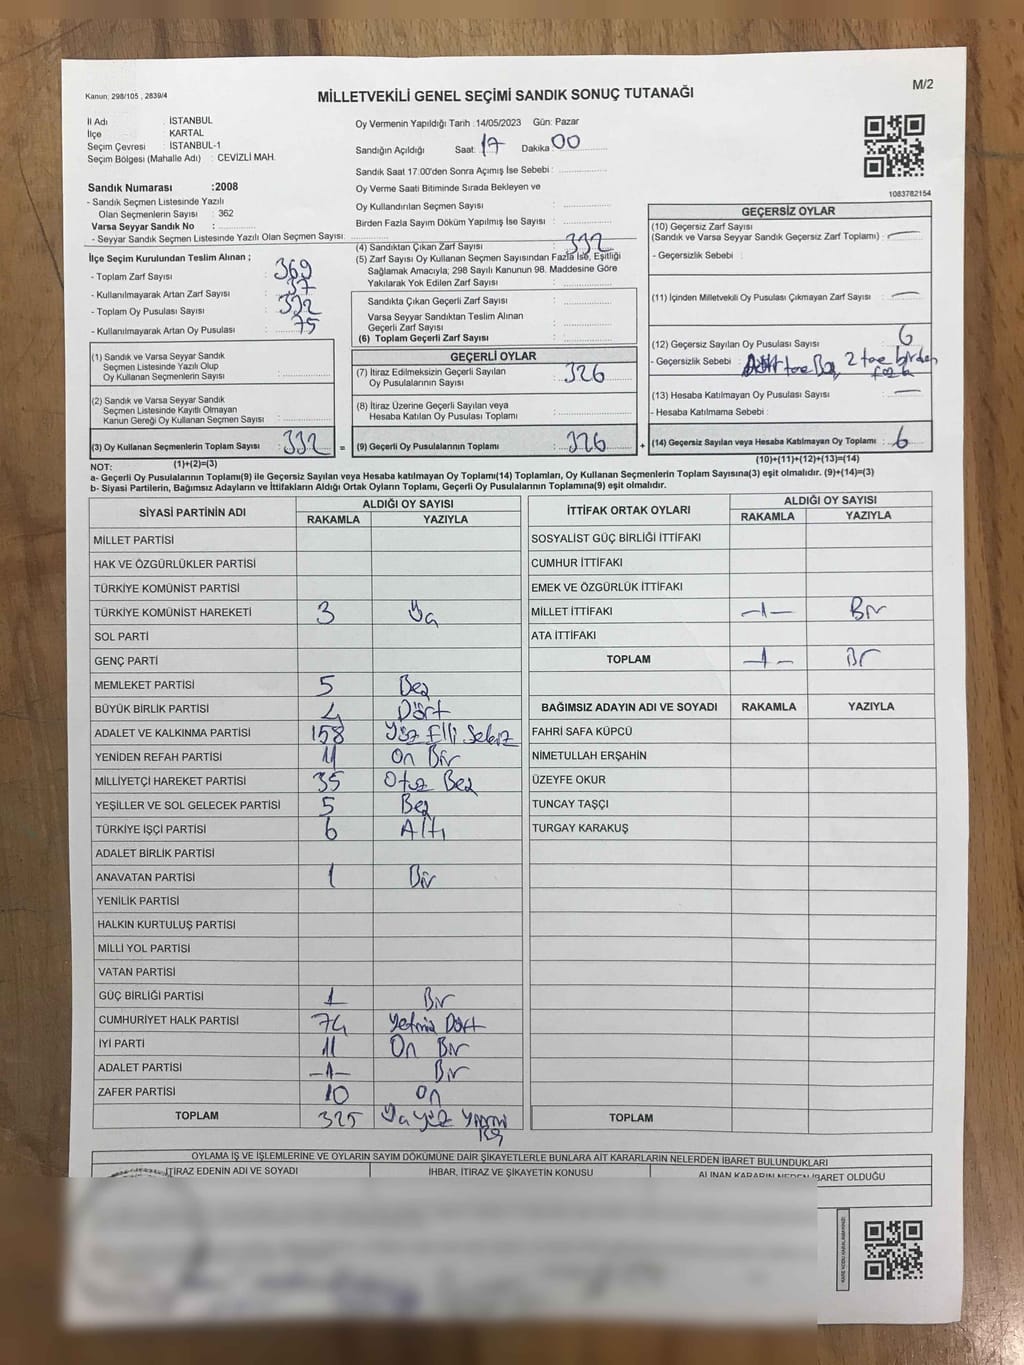 Kanun: 298/105 , 2839/4
MİLLETVEKİLİ GENEL SEÇİMİ SANDIK SONUÇ TUTANAĞI
M/2
İl Adı : İSTANBUL
İlçe : KARTAL
Seçim Çevresi : İSTANBUL-1
Seçim Bölgesi (Mahalle Adı) : CEVİZLİ MAH.
Sandık Numarası :2008
- Sandık Seçmen Listesinde Yazılı
Olan Seçmenlerin Sayısı : 362
Varsa Seyyar Sandık No :
- Seyyar Sandık Seçmen Listesinde Yazılı Olan Seçmen Sayısı:
Oy Vermenin Yapıldığı Tarih :14/05/2023 Gün: Pazar
Sandığın Açıldığı Saat: 17 Dakika: 00
Sandık Saat 17.00'den Sonra Açımış İse Sebebi :
Oy Verme Saati Bitiminde Sırada Bekleyen ve
Oy Kullandırılan Seçmen Sayısı :
Birden Fazla Sayım Döküm Yapılmış İse Sayısı :
1083782154
İlçe Seçim Kurulundan Teslim Alınan ;
- Toplam Zarf Sayısı : 369
- Kullanılmayarak Artan Zarf Sayısı : 37
- Toplam Oy Pusulası Sayısı : 332
- Kullanılmayarak Artan Oy Pusulası : 75
(1) Sandık ve Varsa Seyyar Sandık
Seçmen Listesinde Yazılı Olup
Oy Kullanan Seçmenlerin Sayısı :
(2) Sandık ve Varsa Seyyar Sandık
Seçmen Listesinde Kayıtlı Olmayan
Kanun Gereği Oy Kullanan Seçmen Sayısı :
(3) Oy Kullanan Seçmenlerin Toplam Sayısı : 332 =
(1)+(2)=(3)
(4) Sandıktan Çıkan Zarf Sayısı : 332
(5) Zarf Sayısı Oy Kullanan Seçmen Sayısından Fazla İse, Eşitliği
Sağlamak Amacıyla; 298 Sayılı Kanunun 98. Maddesine Göre
Yakılarak Yok Edilen Zarf Sayısı :
Sandıkta Çıkan Geçerli Zarf Sayısı :
Varsa Seyyar Sandıktan Teslim Alınan
Geçerli Zarf Sayısı :
(6) Toplam Geçerli Zarf Sayısı :
GEÇERLİ OYLAR
(7) İtiraz Edilmeksizin Geçerli Sayılan
Oy Pusulalarının Sayısı : 326
(8) İtiraz Üzerine Geçerli Sayılan veya
Hesaba Katılan Oy Pusulası Toplamı :
(9) Geçerli Oy Pusulalarının Toplamı : 326 +
GEÇERSİZ OYLAR
(10) Geçersiz Zarf Sayısı
(Sandık ve Varsa Seyyar Sandık Geçersiz Zarf Toplamı) : —
- Geçersizlik Sebebi :
(11) İçinden Milletvekili Oy Pusulası Çıkmayan Zarf Sayısı : —
(12) Geçersiz Sayılan Oy Pusulası Sayısı : 6
- Geçersizlik Sebebi : Dört tane Boş, 2 tane birden
fazla
(13) Hesaba Katılmayan Oy Pusulası Sayısı : —
- Hesaba Katılmama Sebebi :
(14) Geçersiz Sayılan veya Hesaba Katılmayan Oy Toplamı : 6
(10)+(11)+(12)+(13)=(14)
NOT:
a- Geçerli Oy Pusulalarının Toplamı(9) ile Geçersiz Sayılan veya Hesaba katılmayan Oy Toplamı(14) Toplamları, Oy Kullanan Seçmenlerin Toplam Sayısına(3) eşit olmalıdır. (9)+(14)=(3)
b- Siyasi Partilerin, Bağımsız Adayların ve İttifakların Aldığı Ortak Oyların Toplamı, Geçerli Oy Pusulalarının Toplamına(9) eşit olmalıdır.
SİYASİ PARTİNİN ADI ALDIĞI OY SAYISI
RAKAMLA YAZIYLA
MİLLET PARTİSİ
HAK VE ÖZGÜRLÜKLER PARTİSİ
TÜRKİYE KOMÜNİST PARTİSİ
TÜRKİYE KOMÜNİST HAREKETİ 3 Üç
SOL PARTİ
GENÇ PARTİ
MEMLEKET PARTİSİ 5 Beş
BÜYÜK BİRLİK PARTİSİ 4 Dört
ADALET VE KALKINMA PARTİSİ 158 Yüz Elli Sekiz
YENİDEN REFAH PARTİSİ 11 On Bir
MİLLİYETÇİ HAREKET PARTİSİ 35 Otuz Beş
YEŞİLLER VE SOL GELECEK PARTİSİ 5 Beş
TÜRKİYE İŞÇİ PARTİSİ 6 Altı
ADALET BİRLİK PARTİSİ
ANAVATAN PARTİSİ 1 Bir
YENİLİK PARTİSİ
HALKIN KURTULUŞ PARTİSİ
MİLLİ YOL PARTİSİ
VATAN PARTİSİ
GÜÇ BİRLİĞİ PARTİSİ 1 Bir
CUMHURİYET HALK PARTİSİ 74 Yetmiş Dört
İYİ PARTİ 11 On Bir
ADALET PARTİSİ -1- Bir
ZAFER PARTİSİ 10 On
TOPLAM 325 Üç yüz yirmi
beş
İTTİFAK ORTAK OYLARI ALDIĞI OY SAYISI
RAKAMLA YAZIYLA
SOSYALİST GÜÇ BİRLİĞİ İTTİFAKI
CUMHUR İTTİFAKI
EMEK VE ÖZGÜRLÜK İTTİFAKI
MİLLET İTTİFAKI -1- Bir
ATA İTTİFAKI
TOPLAM -1- Bir
BAĞIMSIZ ADAYIN ADI VE SOYADI RAKAMLA YAZIYLA
FAHRİ SAFA KÜPCÜ
NİMETULLAH ERŞAHİN
ÜZEYFE OKUR
TUNCAY TAŞÇI
TURGAY KARAKUŞ
TOPLAM
OYLAMA İŞ VE İŞLEMLERİNE VE OYLARIN SAYIM DÖKÜMÜNE DAİR ŞİKAYETLERLE BUNLARA AİT KARARLARIN NELERDEN İBARET BULUNDUKLARI
İTİRAZ EDENİN ADI VE SOYADI İHBAR, İTİRAZ VE ŞİKAYETİN KONUSU ALINAN KARARIN NEDEN İBARET OLDUĞU